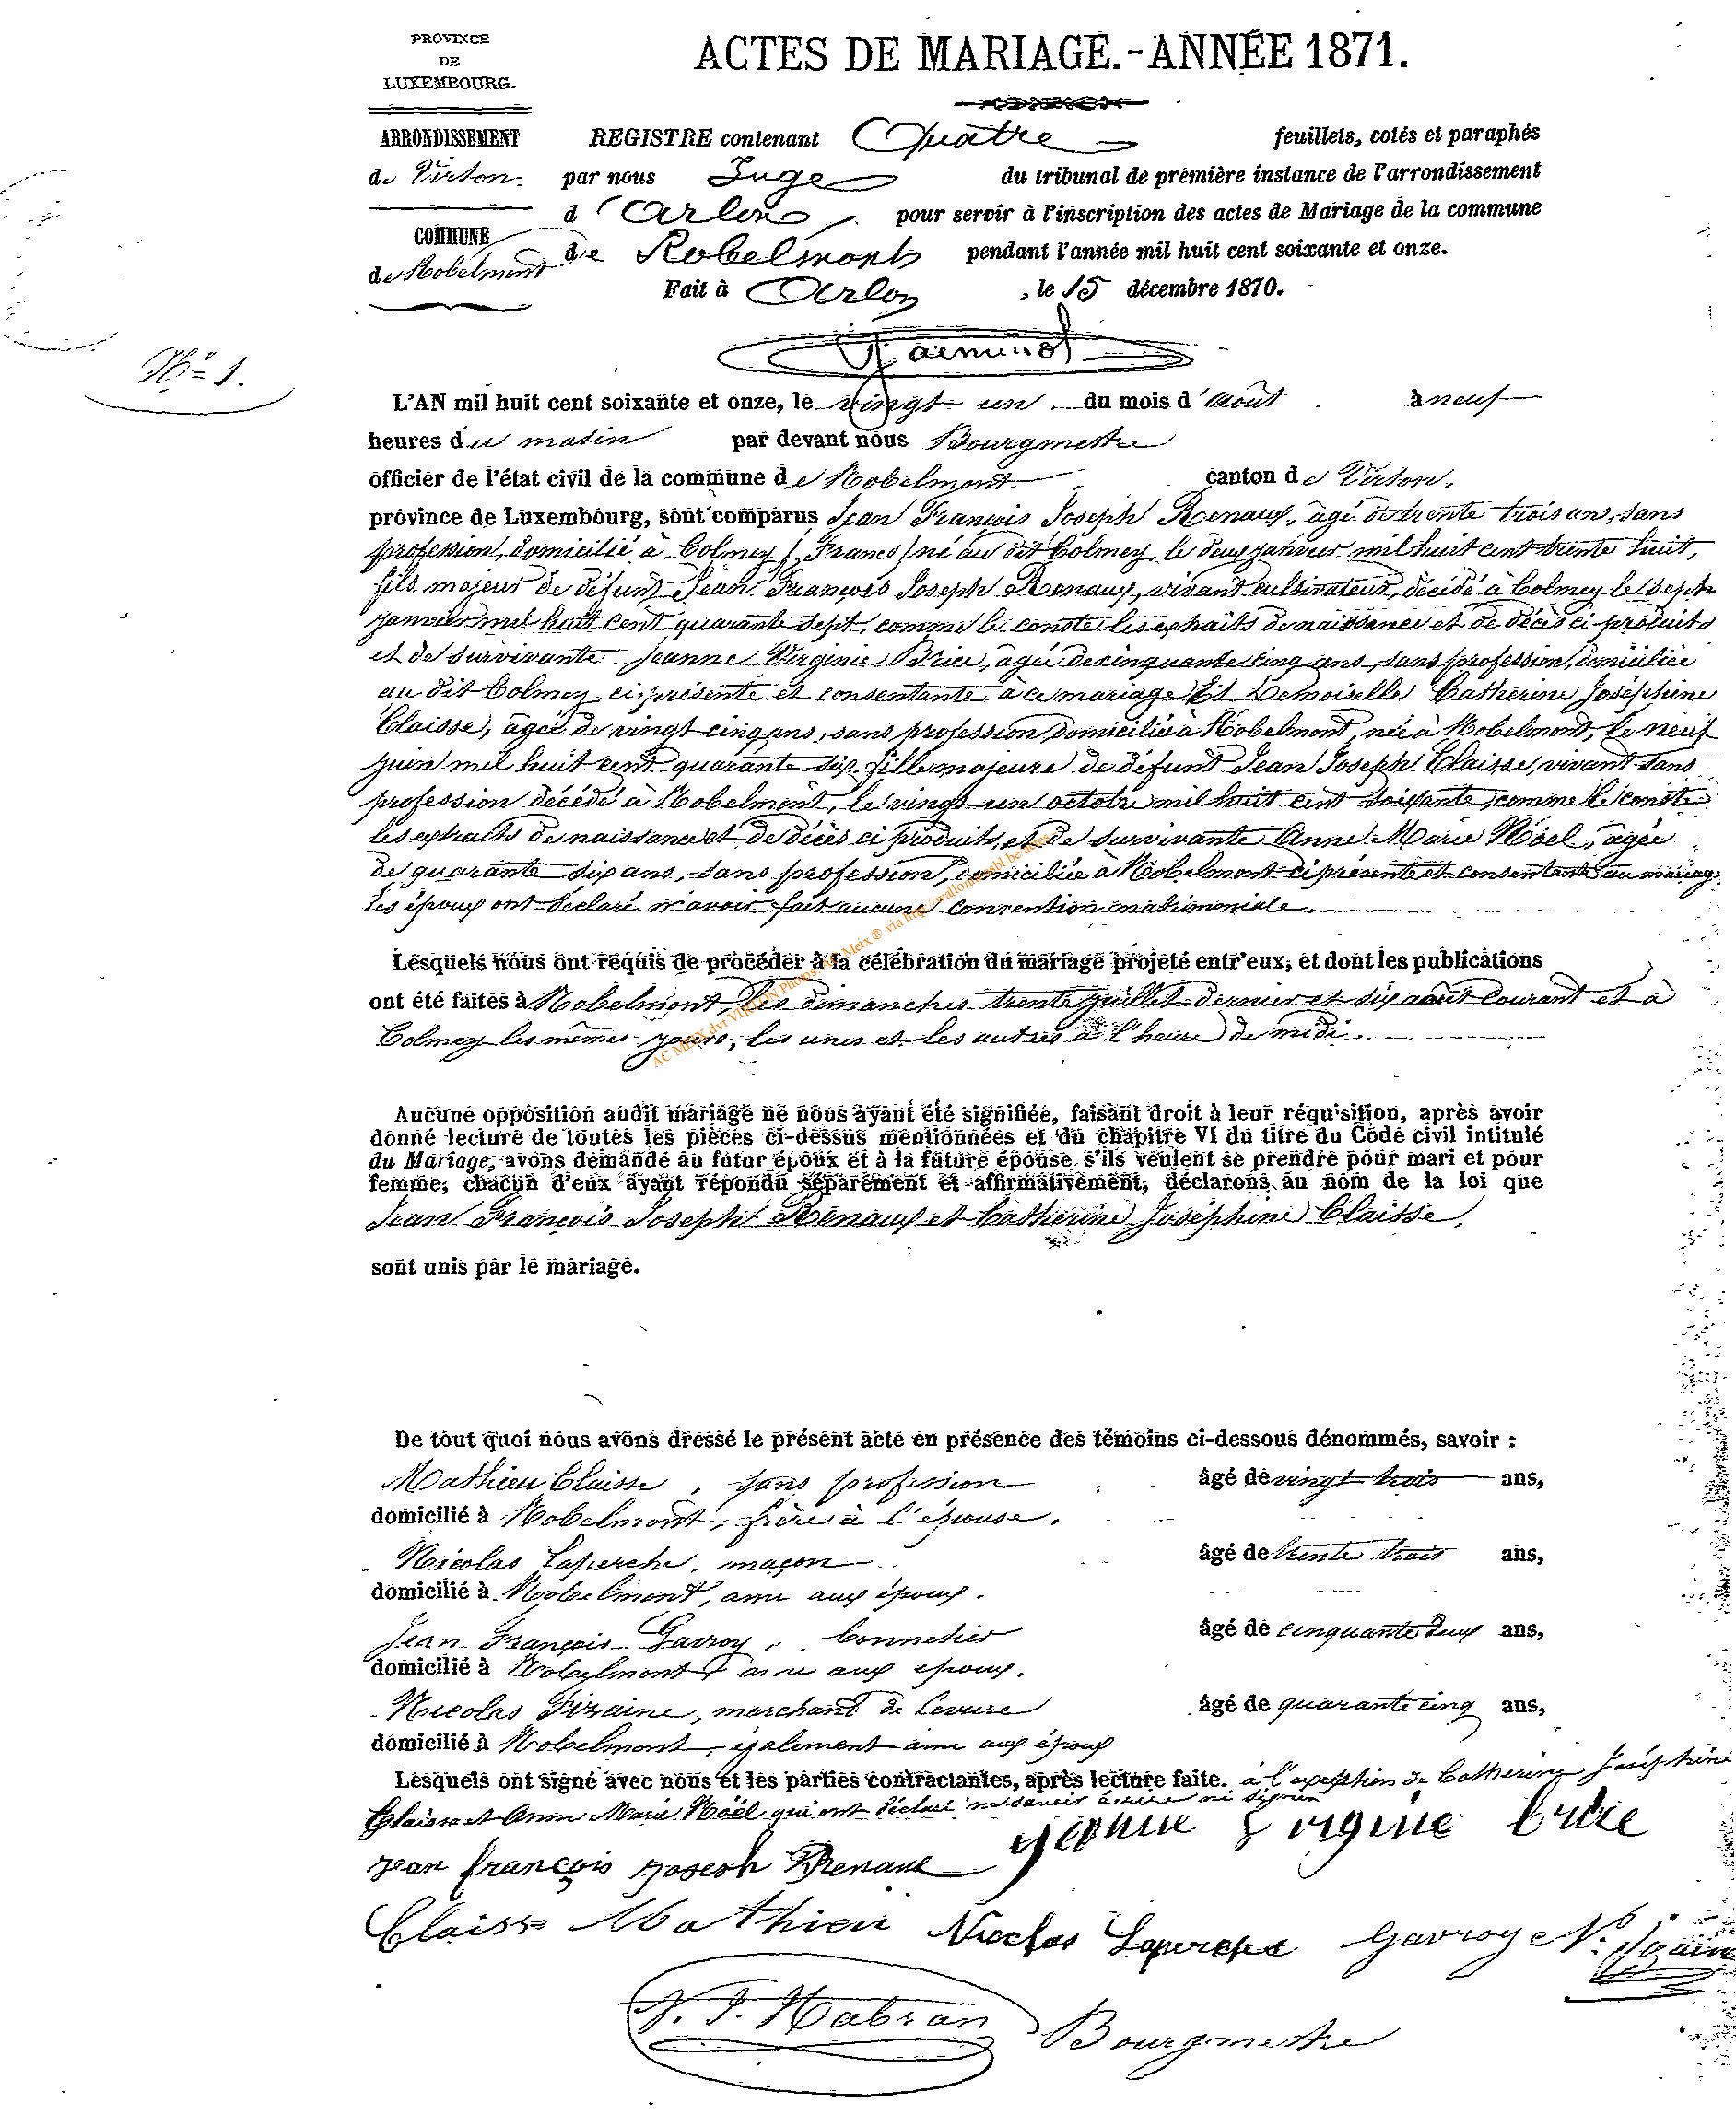 PROVINCE
DE
LUXEMBOURG.
ACTES DE MARIAGE.-ANNÉE 1871.
ARRONDISSEMENT
de Virton.
COMMUNE
de Robelmont
REGISTRE contenant Quatre feuillets, cotés et paraphés
par nous Juge du tribunal de première instance de l'arrondissement
d'Arlon pour servir à l'inscription des actes de Mariage de la commune
de Robelmont pendant l'année mil huit cent soixante et onze.
Fait à Arlon, le 15 décembre 1870.
N° 1.
L'AN mil huit cent soixante et onze, le vingt un du mois d'août à neuf
heures du matin par devant nous Bourgmestre
officier de l'état civil de la commune de Robelmont canton de Virton,
province de Luxembourg, sont comparus Jean François Joseph Renaux, âgé de trente trois an, sans
profession, domicilié à Colmey (France) né au dit Colmey, le deux janvier mil huit cent trente huit,
fils majeur de défunt Jean François Joseph Renaux, vivant cultivateur, décédé à Colmey le sept
janvier mil huit cent quarante sept, comme le conste les extraits de naissance et de décès ci-produits
et de survivante Jeanne Virginie Brice, âgée de cinquante cinq ans, sans profession, domiciliée
au dit Colmey, ci-présente et consentante à ce mariage Et Demoiselle Catherine Joséphine
Claisse, âgée de vingt cinq ans, sans profession, domiciliée à Robelmont, née à Robelmont, le neuf
juin mil huit cent quarante six, fille majeure de défunt Jean Joseph Claisse, vivant sans
profession décédé à Robelmont, le vingt un octobre mil huit cent soixante, comme le conste
les extraits de naissance et de décès ci produits, et de survivante Anne Marie Noël, âgée
de quarante six ans, sans profession, domiciliée à Robelmont ci présente et consentante au mariage
Les époux ont déclaré n'avoir fait aucune convention matrimoniale.
Lesquels nous ont requis de procéder à la célébration du mariage projeté entr'eux, et dont les publications
ont été faites à Robelmont, les dimanches trente juillet dernier et six août courant et à
Colmey les mêmes jours, les unes et les autres à l'heure de midi.
Aucune opposition audit mariage ne nous ayant été signifiée, faisant droit à leur réquisition, après avoir
donné lecture de toutes les pièces ci-dessus mentionnées et du chapitre VI du titre du Code civil intitulé
du Mariage, avons demandé au futur époux et à la future épouse s'ils veulent se prendre pour mari et pour
femme; chacun d'eux ayant répondu séparément et affirmativement, déclarons au nom de la loi que
Jean François Joseph Renaux et Catherine Joséphine Claisse,
sont unis par le mariage.
De tout quoi nous avons dressé le présent acte en présence des témoins ci-dessous dénommés, savoir :
Mathieu Claisse, sans profession âgé de vingt trois ans,
domicilié à Robelmont, frère à l'épouse.
Nicolas Laperche, maçon âgé de trente trois ans,
domicilié à Robelmont, ami aux époux.
Jean François Gavroy, Bonnetier âgé de cinquante deux ans,
domicilié à Robelmont, ami aux époux.
Nicolas Fizaine, marchand de levure âgé de quarante cinq ans,
domicilié à Robelmont, également ami aux époux
Lesquels ont signé avec nous et les parties contractantes, après lecture faite. à l'exception de Catherine Joséphine
Claisse et Anne Marie Noël qui ont déclaré ne savoir écrire ni signer
jeanne virginie brice
jean françois joseph Renaux
Claisse Mathieu Nicolas Laperche Gavroy
Habran Bourgmestre